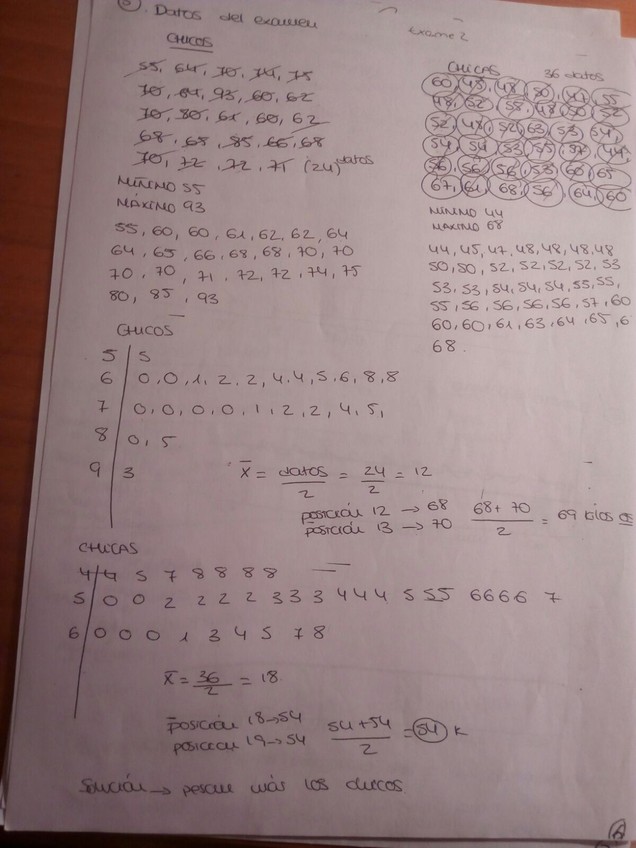 Datos del examen
Examen 2
CHICOS
55, 64, 70, 74, 75
70, 64, 93, 60, 62
70, 80, 61, 60, 62
68, 65, 85, 66, 68
70, 72, 72, 71 (24) datos
MÍNIMO 55
MÁXIMO 93
55, 60, 60, 61, 62, 62, 64
64, 65, 66, 68, 68, 70, 70
70, 70, 71, 72, 72, 74, 75
80, 85, 93
CHICAS 36 datos
MÍNIMO 44
MAXIMO 68
44, 45, 47, 48, 48, 48, 48
50, 50, 52, 52, 52, 52, 53
53, 53, 54, 54, 54, 55, 55,
55, 56, 56, 56, 56, 57, 60
60, 60, 61, 63, 64, 65, 6
68.
CHICOS
5 | 5
6 | 0, 0, 1, 2, 2, 4, 4, 5, 6, 8, 8
7 | 0, 0, 0, 0, 1, 2, 2, 4, 5,
8 | 0, 5
9 | 3
x̄ = datos/2 = 24/2 = 12
posición 12 → 68
posición 13 → 70
68+70/2 = 69 kilos
CHICAS
4 | 4 5 7 8 8 8 8
5 | 0 0 2 2 2 2 3 3 3 4 4 4 5 5 5 6 6 6 6 7
6 | 0 0 0 1 3 4 5 7 8
x̄ = 36/2 = 18
posición 18 → 54
posición 19 → 54
54+54/2 = 54 K
Solución → pesan más los chicos